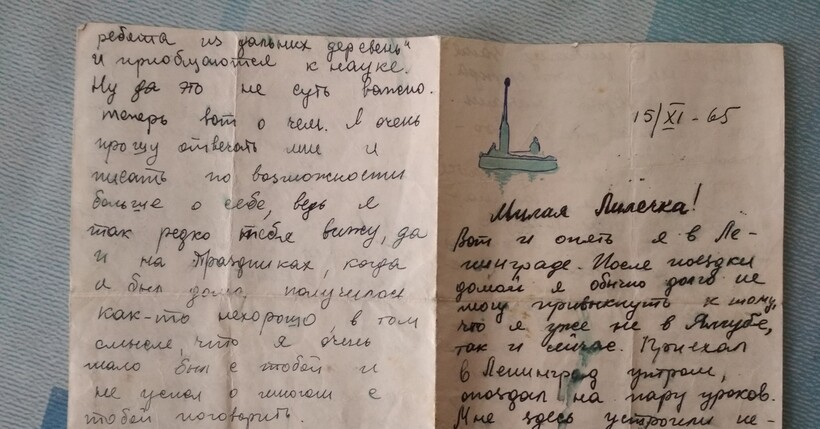 ребята из дальних деревень"
и приобщаются к науке.
Ну да это не суть важно.
теперь вот о чем. Я очень
прошу отвечать мне и
писать по возможности
больше о себе, ведь я
так редко тебя вижу, да
и на праздниках, когда
я был дома, получилось
как-то нехорошо, в том
смысле, что я очень
мало был с тобой и
не успел о многом с
тобой поговорить.
15/XI - 65
Милая Лилечка!
Вот и опять я в Ле-
нинграде. После поездки
домой я обычно долго не
могу привыкнуть к тому,
что я уже не в Ялгубе,
так и сейчас. Приехал
в Ленинград утром,
опоздал на пару уроков.
Мне здесь устроили не-